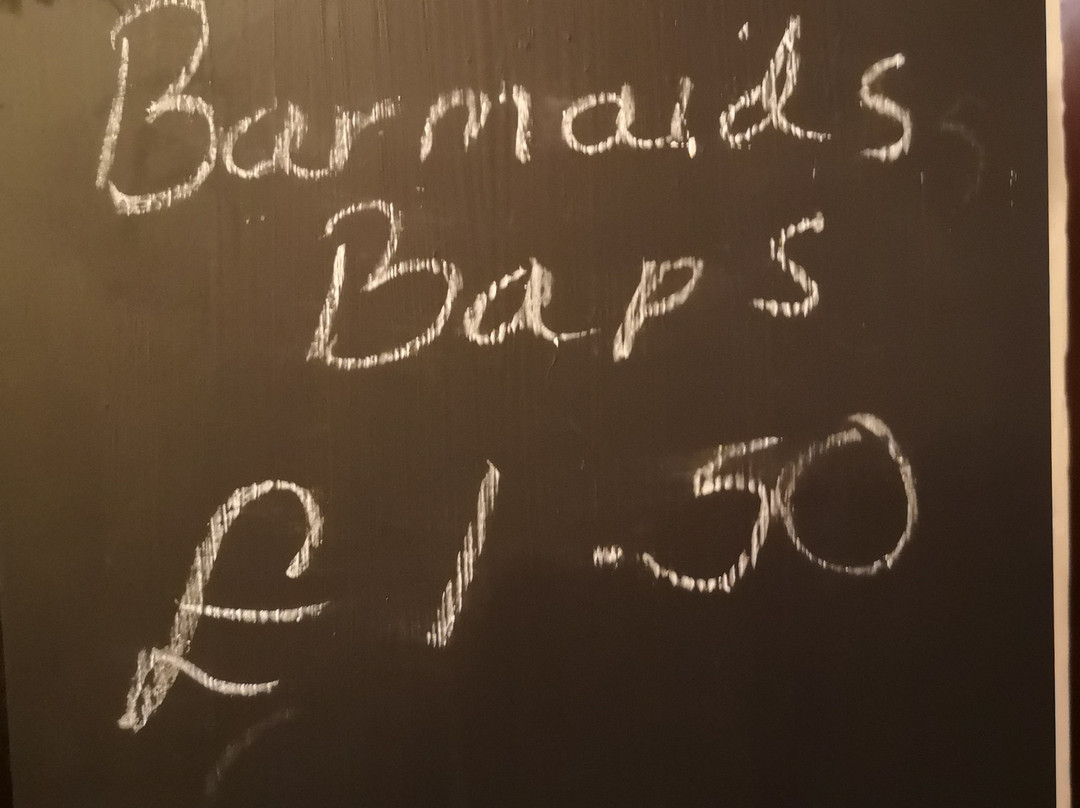 Barmaids
Baps
£1.50